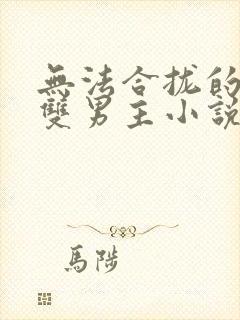 無法合拢的
雙男主小説
馬陟